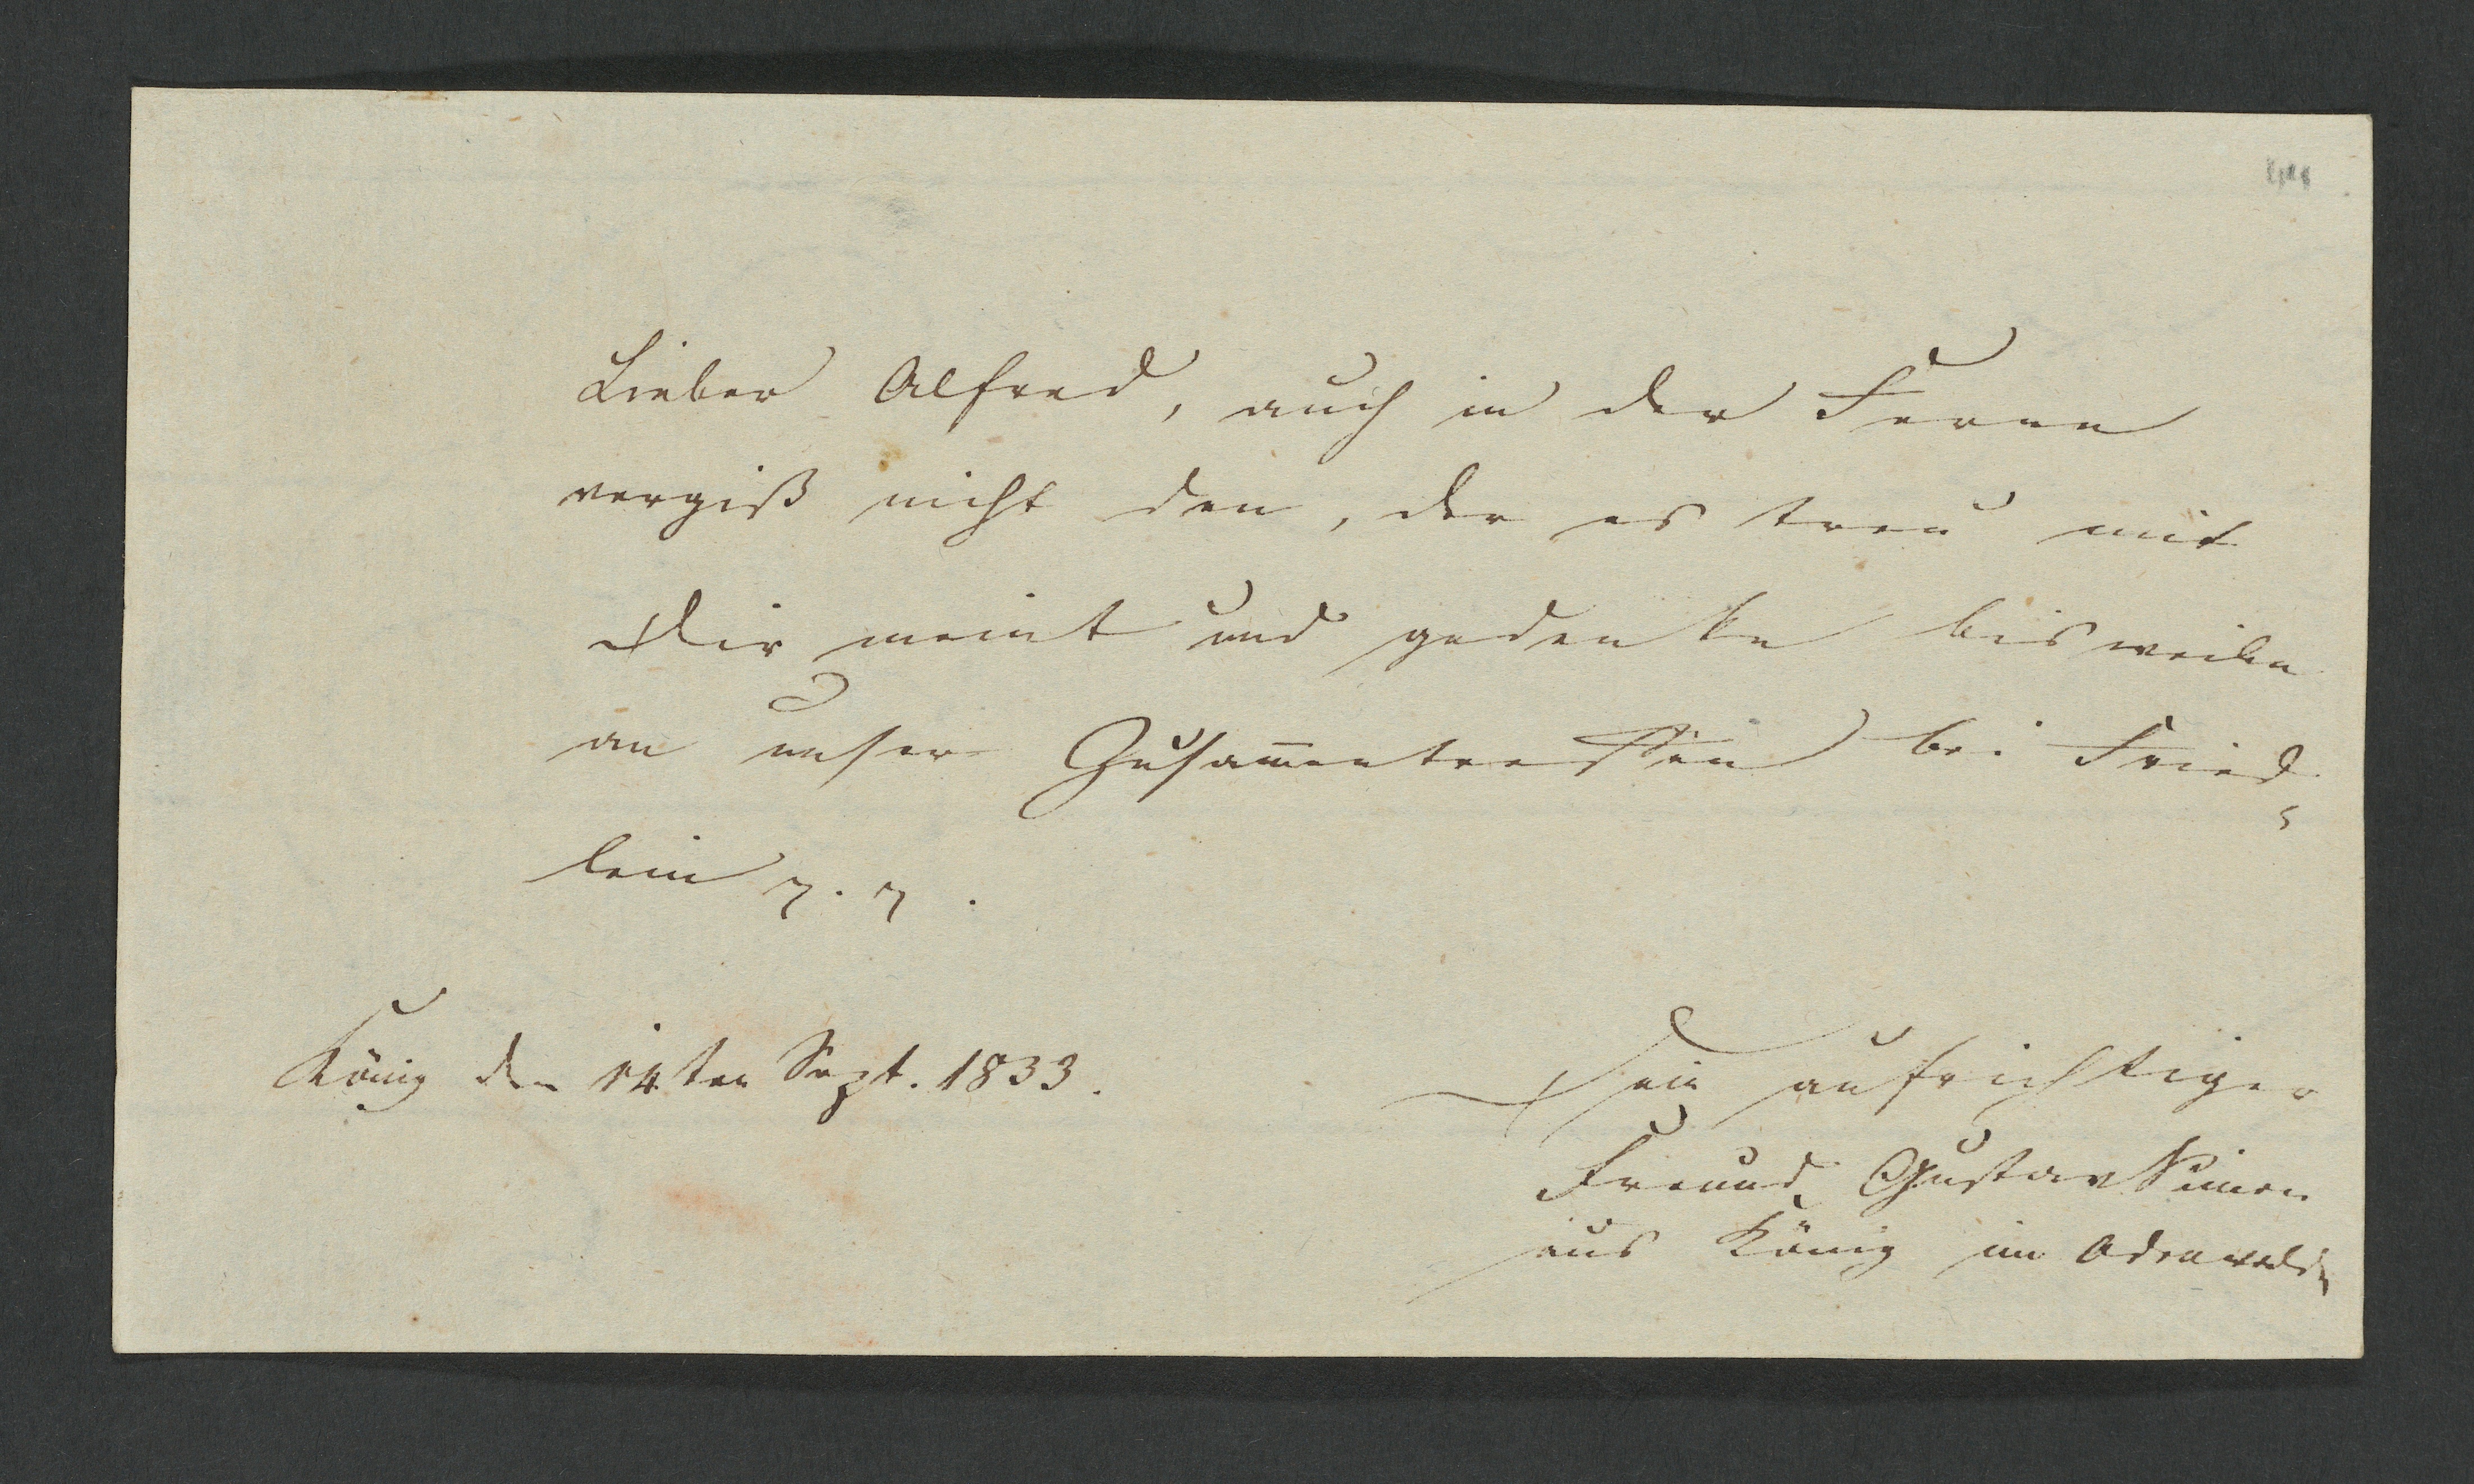 Lieber Alfred, auch in der Ferne
vergiß nicht den, der es treu mit
Dir meint und gedenke bisweilen
an unser Zusam̅entreffen bei Fried-
lein
König den 14ten Sept. 1833.
Dein aufrichtiger
Freund Gustav Simon
aus König im Odenwalde